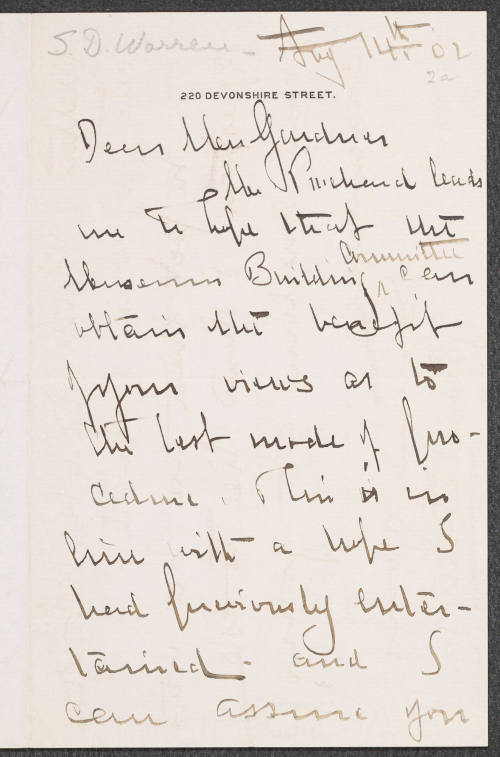 S. D. Warren -
Aug 14th '02
2a
220 DEVONSHIRE STREET.
Dear Mrs Gardner
Mr Prichard leads
me to hope that the
Museum Building Committee can
obtain the benefit
of your views as to
the best mode of pro-
cedure. This is in
line with a hope I
had previously enter-
tained - and I
can assure you